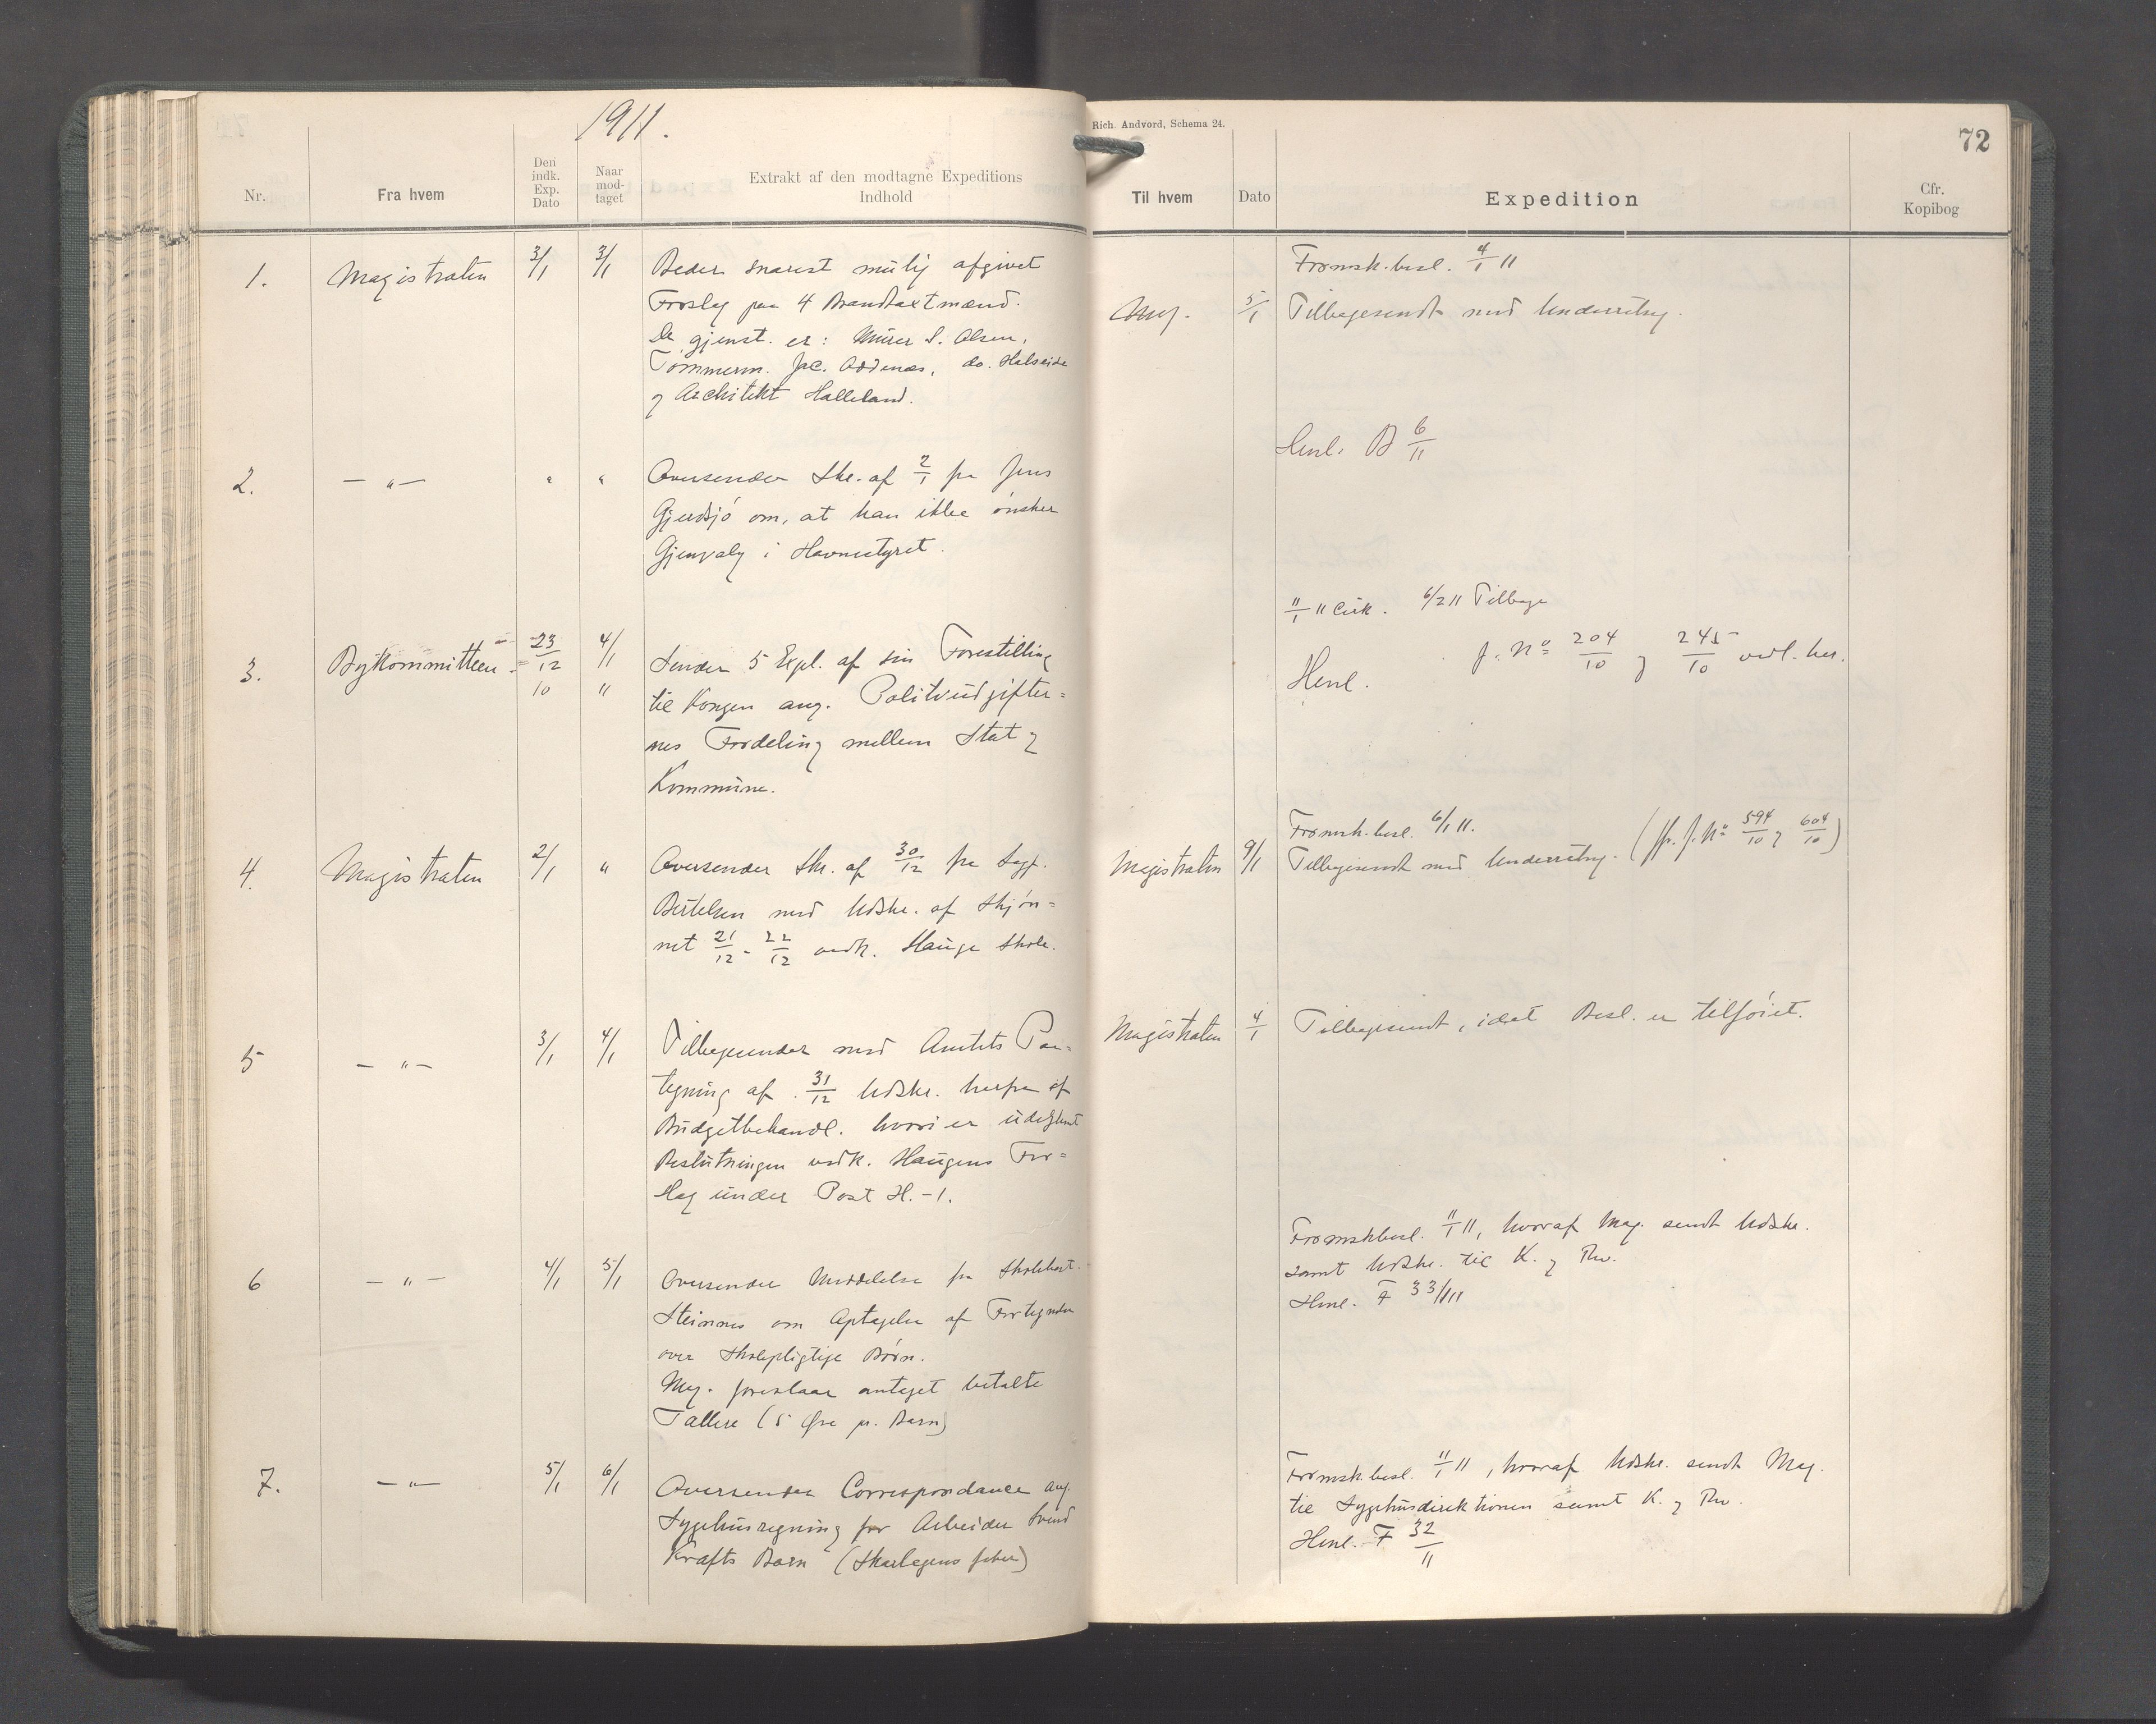 1911.
Rich. Andvord, Schema 24.
72
Nr.
Fra hvem
Den indk. Exp. Dato
Naar mod- taget
Extrakt af den modtagne Expeditions Indhold
Til hvem
Dato
Expedition
Cfr. Kopibog
1. Magistraten 3/1 3/1 Beder snarest mulig afgivet
Forslag paa 4 Brandtaxtmænd.
De gjenst. er: Murer S. Olsen,
Tømmerm. Jac. Oddenæs, do. Halseide
og Architekt Halleland.
Formsk.besl. 4/1 11
Mag. 5/1 Tilbagesendt med Underretng.
2. — " — " " Oversender Skr. af 2/1 fra Jens
Gjerdsjø om, at han ikke ønsker
Gjenvalg i Havnestyret.
Henl. B 6/11
3. Bykommitteen 23/12 10 4/1 11 Sender 5 Expl. af sin Forestilling
til Kongen ang. Politiudgifter=
nes Fordeling mellem Stat og
Kommune.
11/1 11 Cirk. 6/2 11 Tilbage
J. No 204/10 og 245/10 vedl. her.
Henl.
4. Magistraten 2/1 " Oversender Skr. af 30/12 fra Sagf.
Bertelsen med Udskr. af Skjøn=
net 21/12 - 22/12 vedk. Hauge Skole.
Formsk.besl. 6/1 11.
Magistraten 9/1 Tilbagesendt med Underretng. (jfr. J. No 594/10 og 604/10)
5 — " — 3/1 4/1 Tilbagesender med Amtets Paa=
tegning af 31/12 Udskr. herfra af
Budgetbehandl. hvori er udeglemt
Beslutningen vedk. Haugens For=
slag under Post H.-1.
Magistraten 4/1 Tilbagesendt, idet Besl. er tilføiet.
6 — " — 4/1 5/1 Oversender Meddelelse fra Skolebest.
Steinnes om Optagelse af Fortegnelse
over skolepligtige Børn.
Mag. foreslaar antaget betalte
Tællere (5 Øre pr. Barn)
Formskbesl. 11/1 11, hvoraf Mag. sendt Udskr.
samt Udskr. til K. og Rv.
Henl. F 33/11
7. — " — 5/1 6/1 Oversender Correspondance ang.
Sygehusregning for Arbeider Svend
Krafts Barn (Skarlagensfeber)
Formsk.besl. 11/1 11, hvoraf Udskr. sendt Mag.
til Sygehusdirektionen samt K. og Rv.
Henl. F 32/11